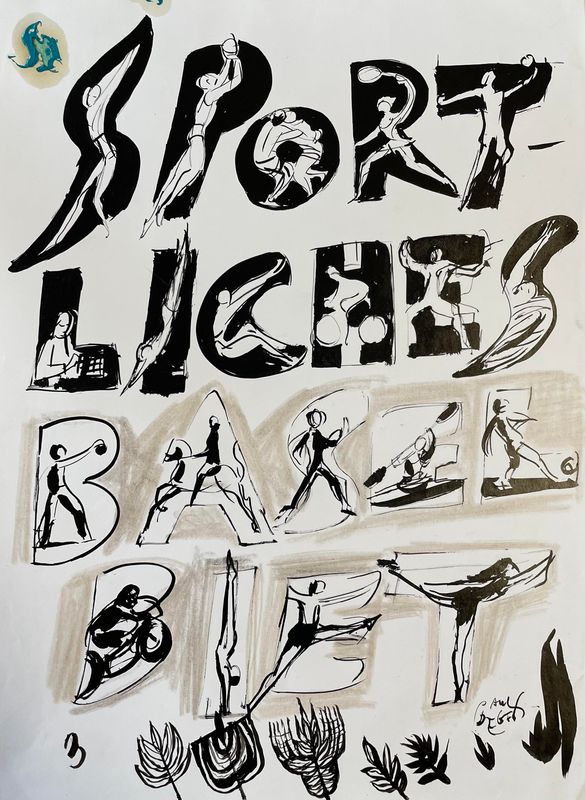 SPORT-
LICHES
BASEL
BIET
3